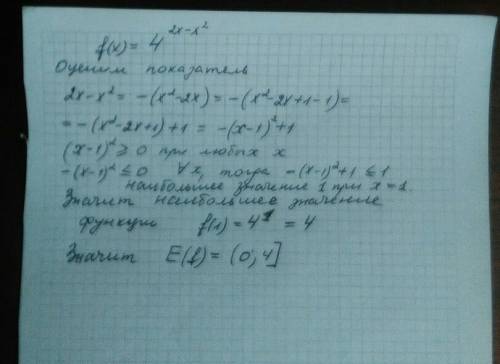 f(x) = 4^{2x-x²}
Оценим показатель
2x-x² = -(x²-2x) = -(x²-2x+1-1)=
= -(x²-2x+1)+1 = -(x-1)²+1
(x-1)² ⩾ 0 при любых x
-(x-1)² ⩽ 0 ∀x, тогда -(x-1)²+1 ⩽ 1
наибольшее значение 1 при x=1.
Значит наибольшее значение
функции f(1) = 4¹ = 4
Значит E(f) = (0; 4]